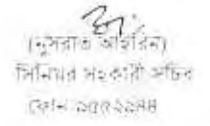 (নুসরাত আইরিন)
সিনিয়র সহকারী সচিব
ফোন- ৯৫৫২৯৪৪